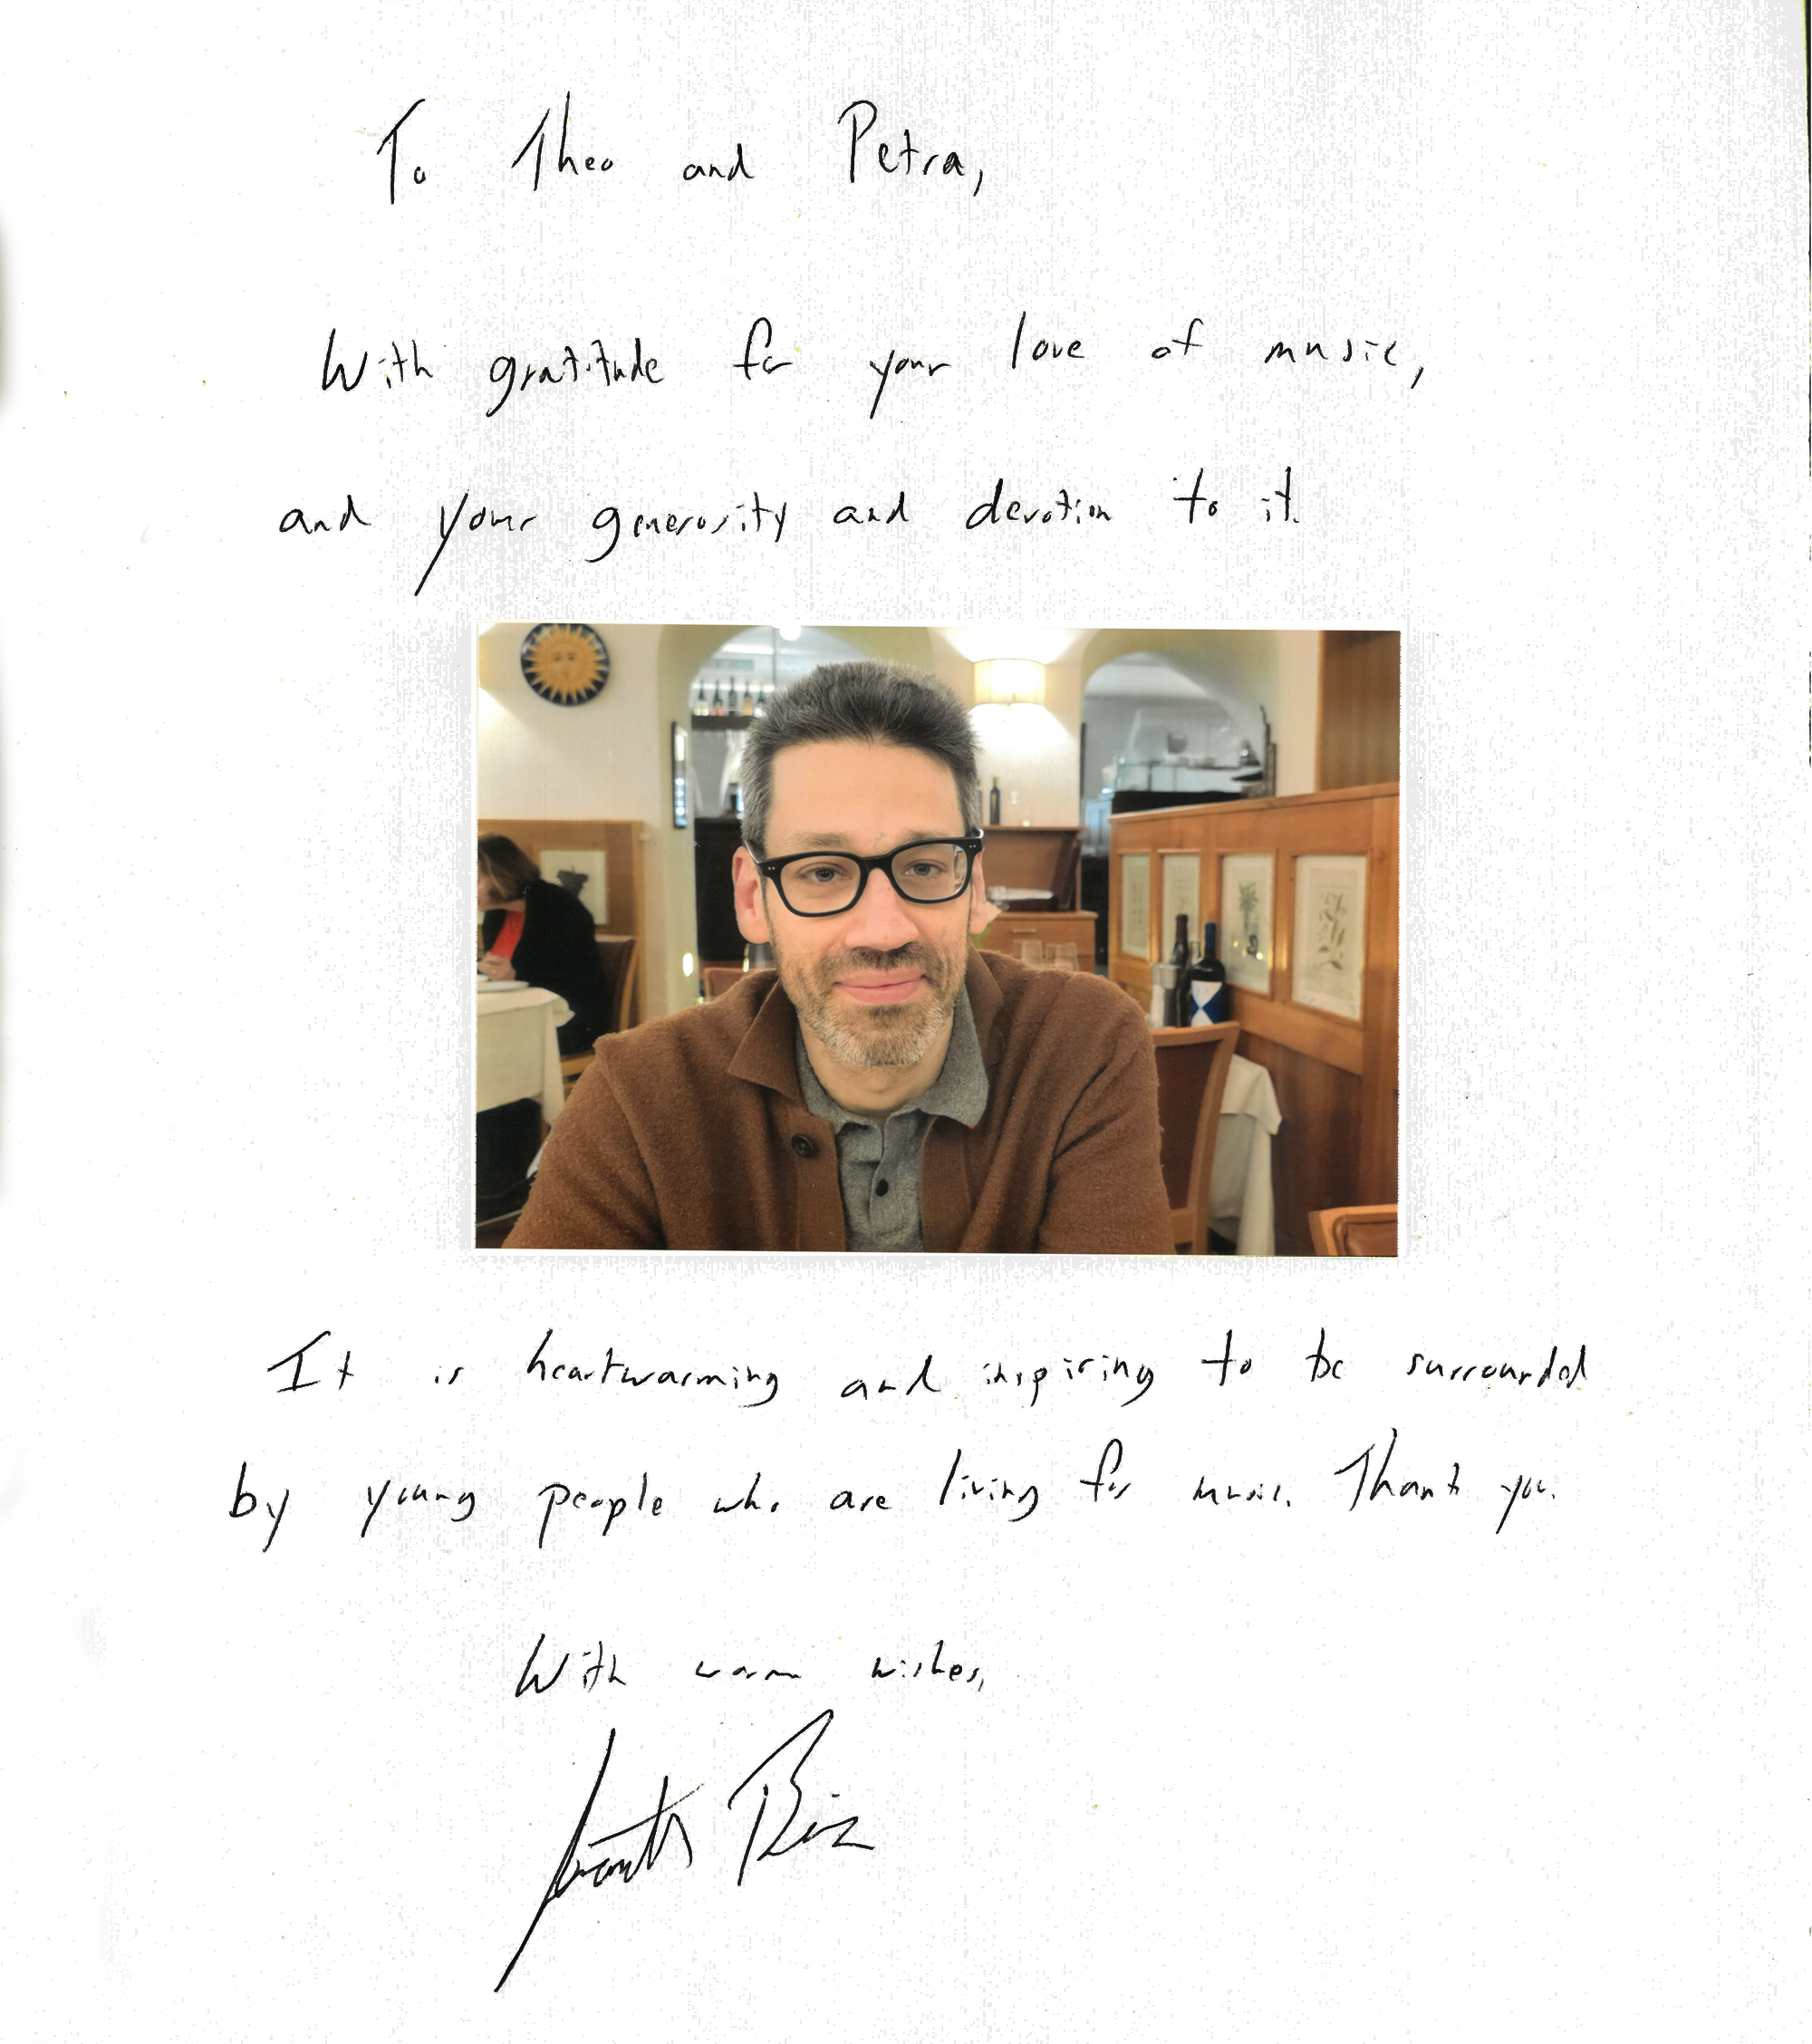 To Theo and Petra,
With gratitude for your love of music,
and your generosity and devotion to it.
It is heartwarming and inspiring to be surrounded
by young people who are living for music. Thank you.
With warm wishes,